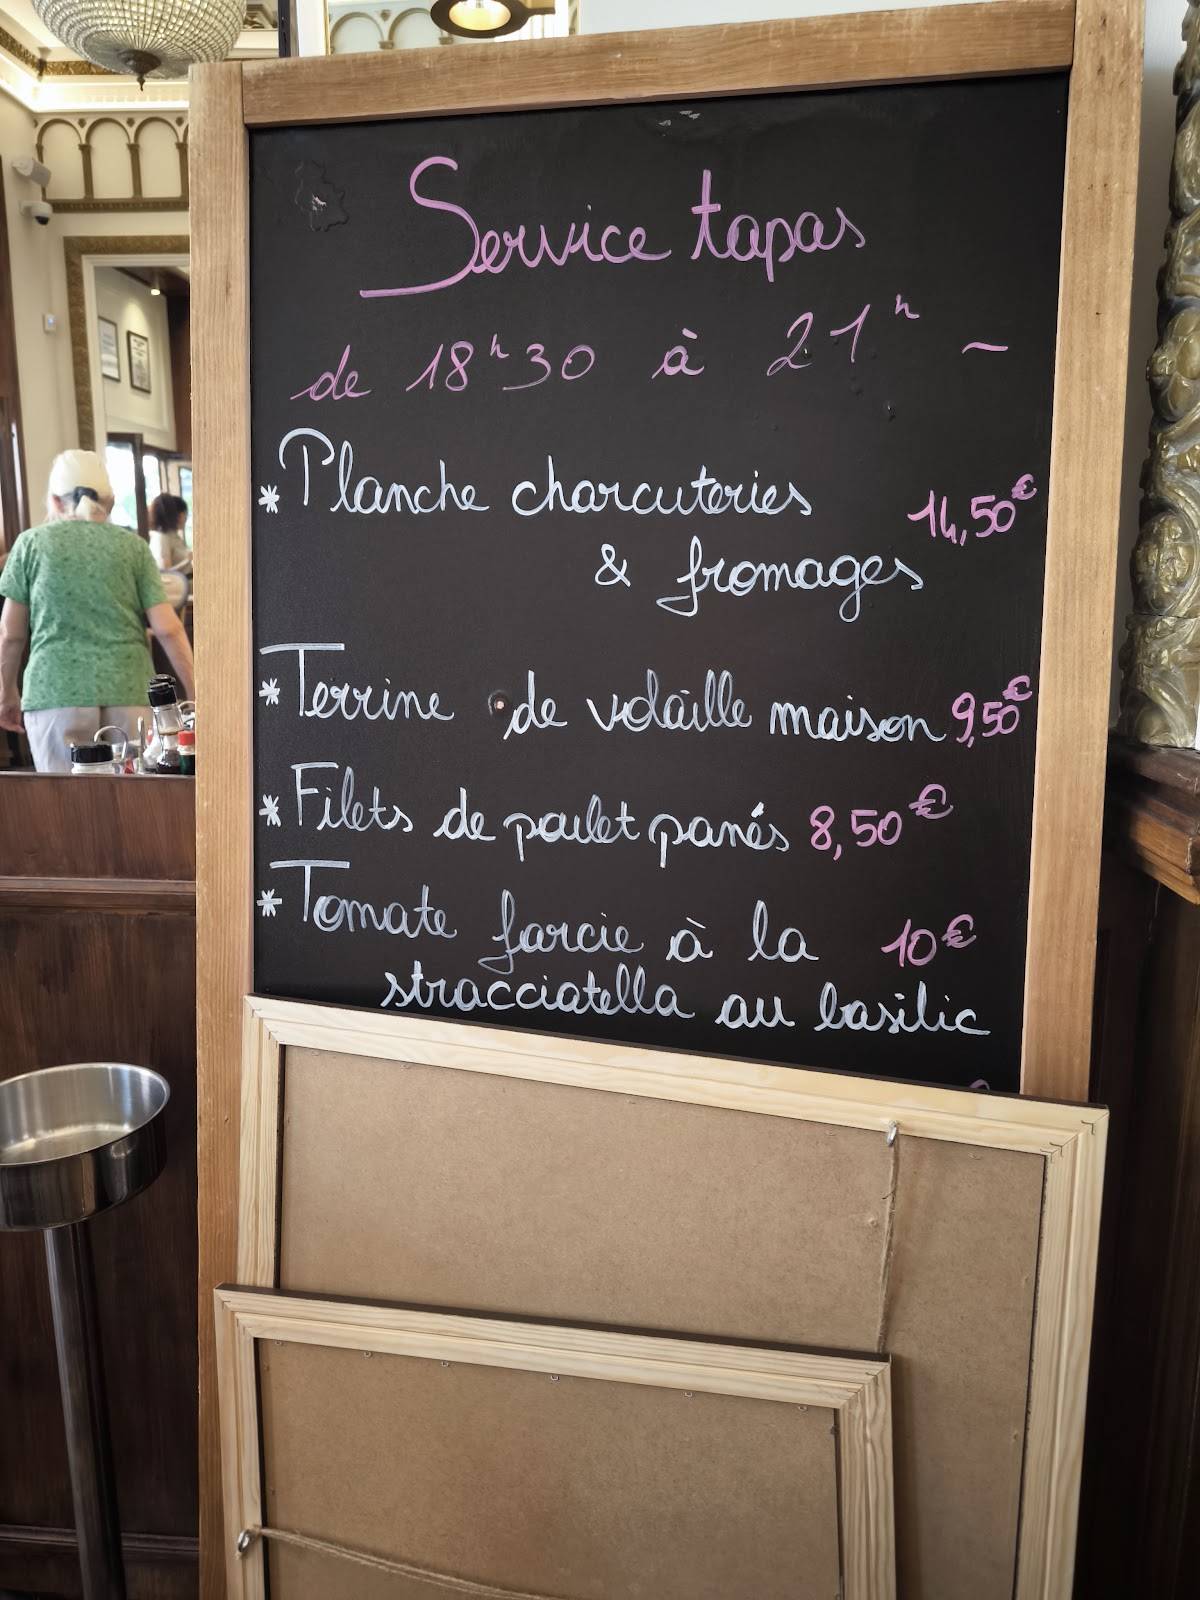 Service tapas
de 18h30 à 21h ~
* Planche charcuteries 14,50€
& fromages
* Terrine de volaille maison 9,50€
* Filets de poulet panés 8,50€
* Tomate farcie à la 10€
stracciatella au basilic